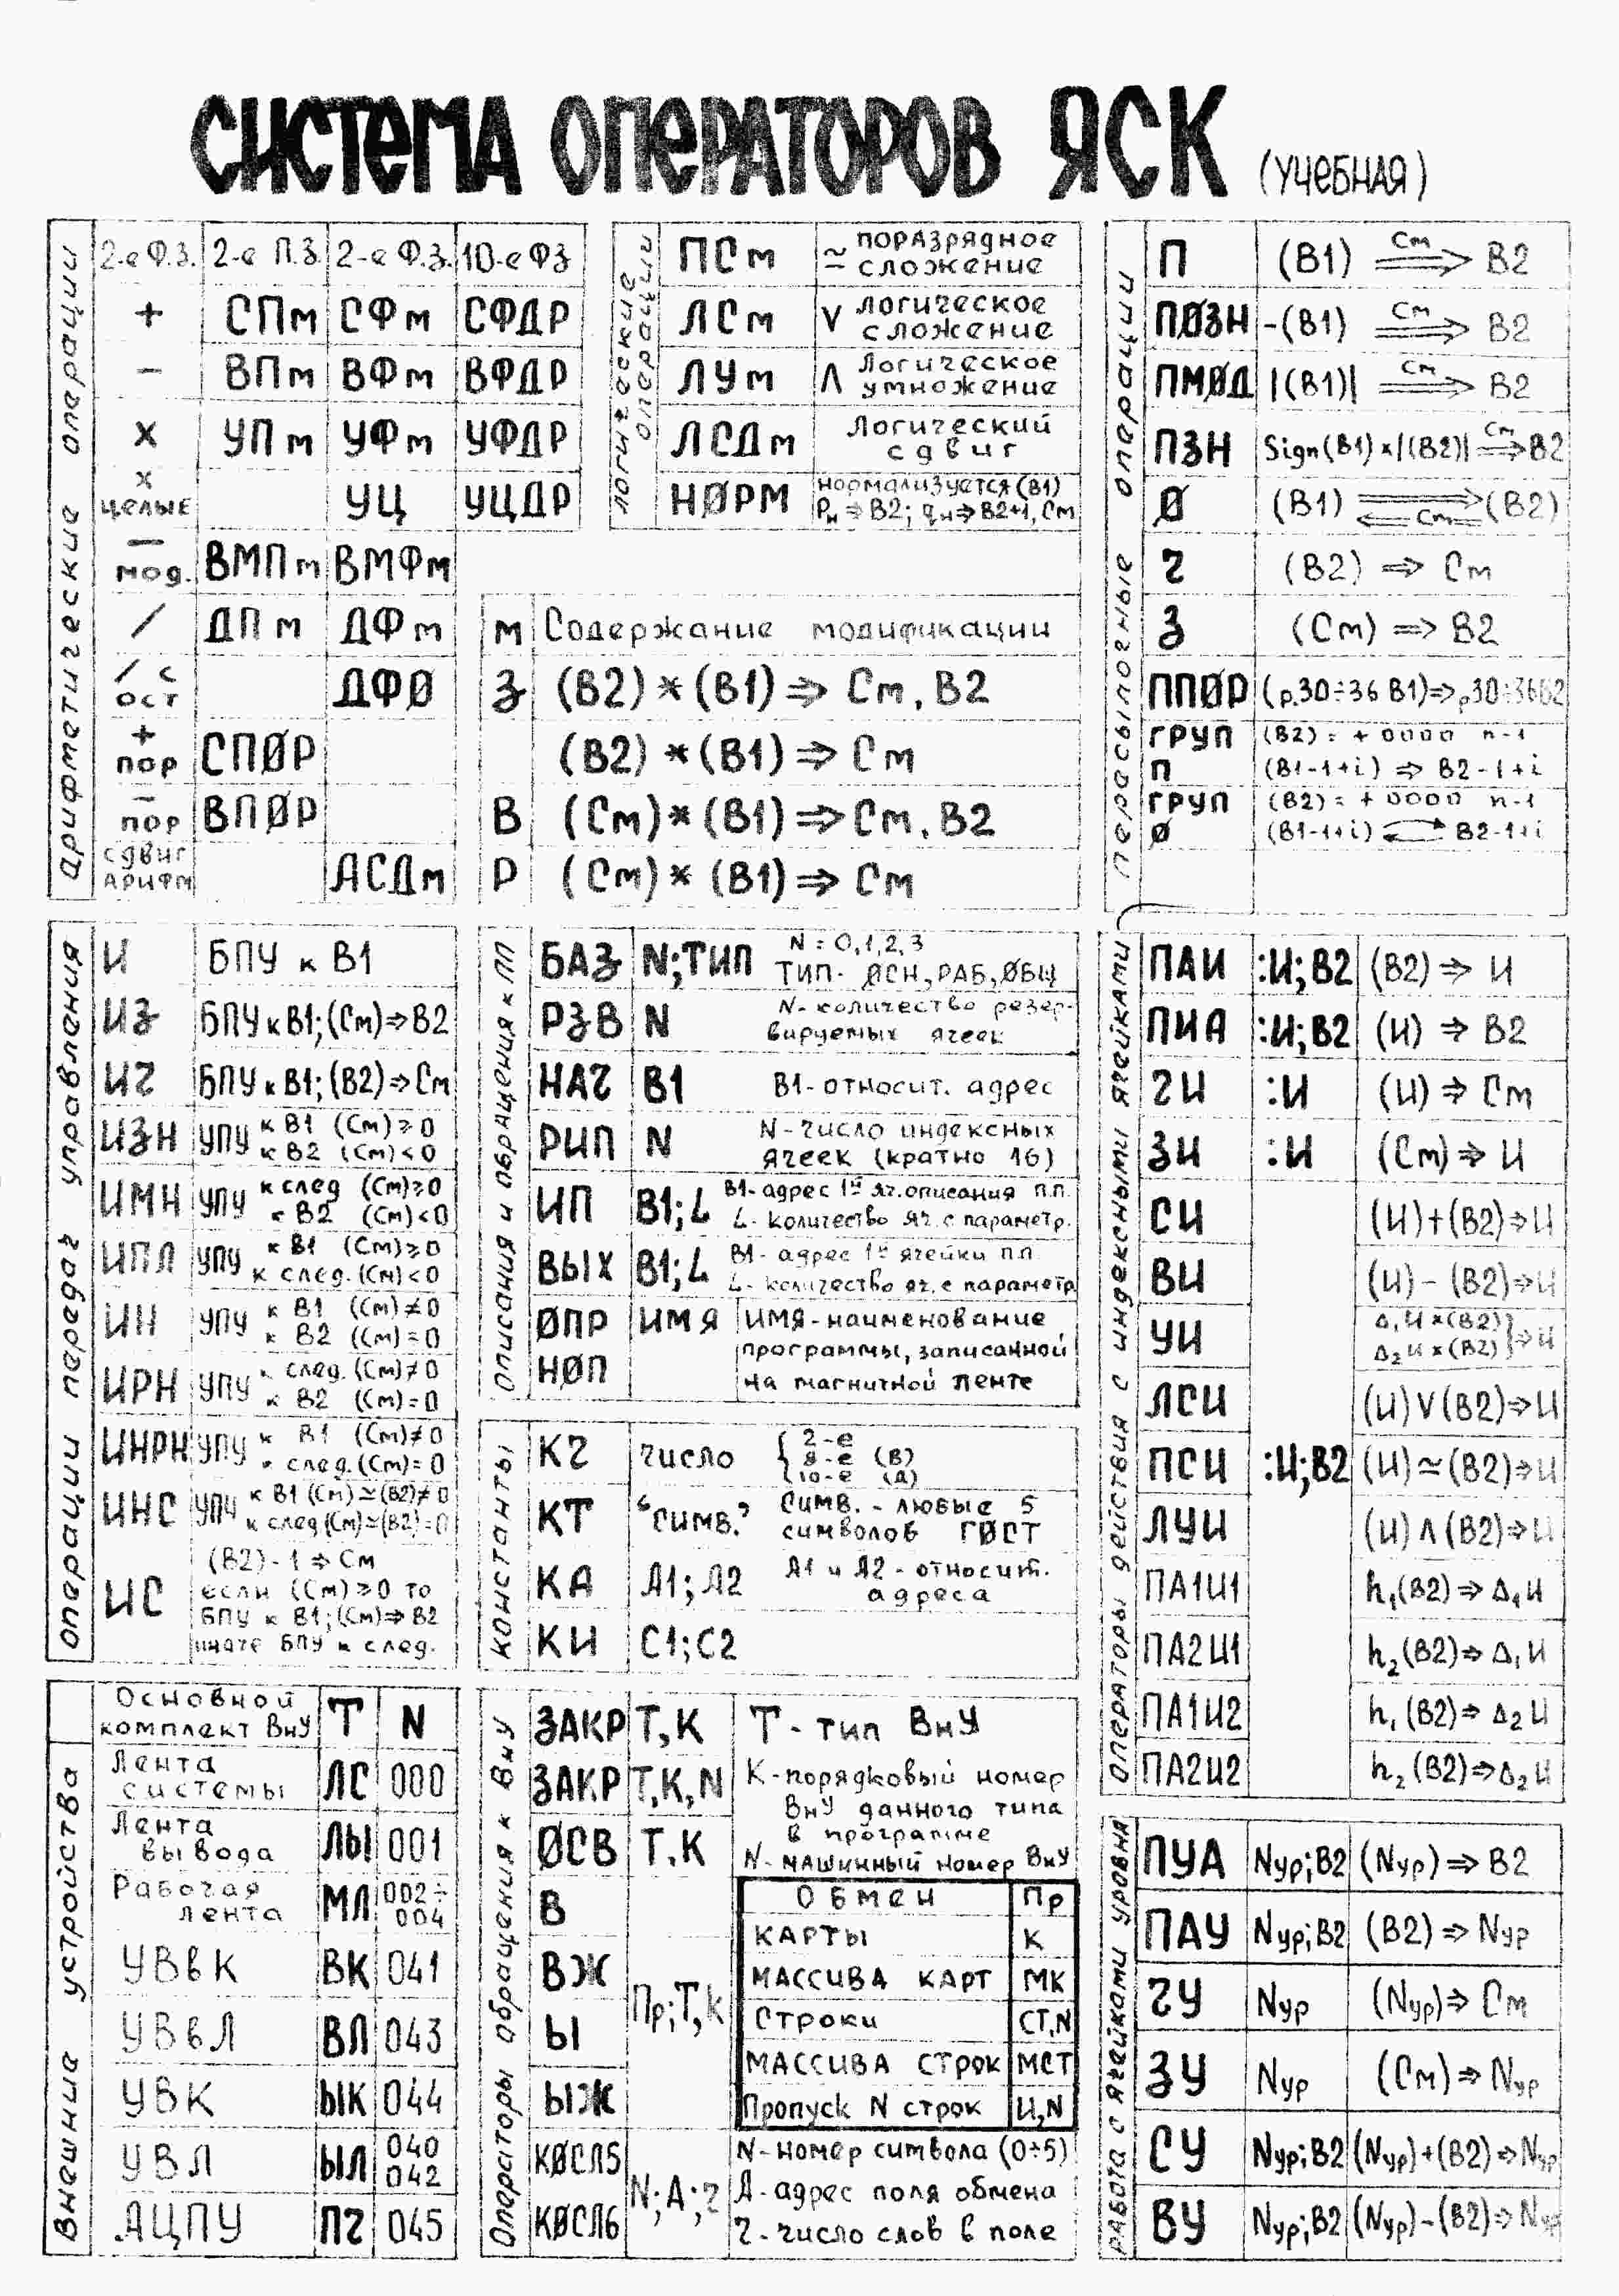 СИСТЕМА ОПЕРАТОРОВ ЯСК (УЧЕБНАЯ)
арифметические операции
2-е Ф.З. 2-е П.З. 2-е Ф.З. 10-е ФЗ
+ СПм СФм СФДР
− ВПм ВФм ВФДР
× УПм УФм УФДР
×
целые УЦ УЦДР
−
мод. ВМПм ВМФм
/ ДПм ДФм
/ с
ост ДФØ
+
пор СПØР
−
пор ВПØР
сдвиг
АРИФМ АСДм
логические
операции
ПСм ≃ ПОРАЗРЯДНОЕ
сложение
ЛСм ∨ логическое
сложение
ЛУм ∧ логическое
умножение
ЛСДм Логический
сдвиг
НØРМ нормализуется (В1)
Рн ⇒ В2; qн ⇒ В2+1, См
м Содержание модификации
З (В2) * (В1) ⇒ См, В2
(В2) * (В1) ⇒ См
В (См) * (В1) ⇒ См, В2
Р (См) * (В1) ⇒ См
пересылочные операции
П (В1) См ⇒ В2
ПØЗН -(В1) См ⇒ В2
ПМØД |(В1)| См ⇒ В2
ПЗН Sign(В1)×|(В2)| См ⇒ В2
Ø (В1) ⇒ ⇐ См (В2)
Ч (В2) ⇒ См
З (См) ⇒ В2
ППØР (р.30÷36 В1) ⇒ р30÷36В2
ГРУП (В2) = + 0000 n-1
П (В1-1+i) ⇒ В2-1+i
ГРУП (В2) = + 0000 n-1
Ø (В1-1+i) ⇄ В2-1+i
операции передач управления
И БПУ к В1
ИЗ БПУ к В1; (См) ⇒ В2
ИЧ БПУ к В1; (В2) ⇒ См
ИЗН УПУ к В1 (См) ≥ 0
к В2 (См) < 0
ИМН УПУ к след (См) ≥ 0
к В2 (См) < 0
ИПЛ УПУ к В1 (См) ≥ 0
к след. (См) < 0
ИН УПУ к В1 (См) ≠ 0
к В2 (См) = 0
ИРН УПУ к след. (См) ≠ 0
к В2 (См) = 0
ИНРН УПУ к В1 (См) ≠ 0
к след. (См) = 0
ИНС УПЧ к В1 (См) ≃ (В2) ≠ 0
к след (См) ≃ (В2) = 0
ИС (В2) - 1 ⇒ См
если (См) ≥ 0 то
БПУ к В1; (См) ⇒ В2
иначе БПУ к след.
Описания и обращения к ПП
БАЗ N;ТИП N = 0,1,2,3
ТИП - ØСН, РАБ, ØБЩ
РЗВ N N - количество резер-
вируемых ячеек
НАЧ В1 В1 - относит. адрес
РИП N N - число индексных
ячеек (кратно 16)
ИП В1; L В1 - адрес 1й яч. описания п.п.
L - количество яч. с параметр.
ВЫХ В1; L В1 - адрес 1й ячейки п.п
L - количество яч. с параметр
ØПР ИМЯ ИМЯ - наименование
НØП программы, записанной
на магнитной ленте
константы
КЧ число { 2-е
8-е (В)
10-е (Д)
КТ "симв." Симв. - любые 5
символов ГØСТ
КА А1; А2 А1 и А2 - относит.
адреса
КИ С1; С2
операторы действия с индексными ячейками
ПАИ :И;В2 (В2) ⇒ И
ПИА :И;В2 (И) ⇒ В2
ЧИ :И (И) ⇒ См
ЗИ :И (См) ⇒ И
СИ (И)+(В2) ⇒ И
ВИ (И) - (В2) ⇒ И
УИ Δ₁И×(В2)
Δ₂И×(В2) } ⇒ И
ЛСИ (И) ∨ (В2) ⇒ И
ПСИ :И;В2 (И) ≃ (В2) ⇒ И
ЛУИ (И) ∧ (В2) ⇒ И
ПА1И1 h₁(В2) ⇒ Δ₁И
ПА2И1 h₂(В2) ⇒ Δ₁И
ПА1И2 h₁(В2) ⇒ Δ₂И
ПА2И2 h₂(В2) ⇒ Δ₂И
Внешние устройства
Основной
комплект ВнУ Т N
Лента
системы ЛС 000
Лента
вывода ЛЫ 001
Рабочая
лента МЛ 002÷
004
УВвК ВК 041
УВвЛ ВЛ 043
УВК ЫК 044
УВЛ ЫЛ 040
042
АЦПУ ПЧ 045
Операторы обращения к ВнУ
ЗАКР Т,К Т - тип ВнУ
ЗАКР Т,К,N К - порядковый номер
ВнУ данного типа
в программе
ØСВ Т,К N - машинный номер ВнУ
В
ВЖ
Ы
ЫЖ
Пр;Т,К
Обмен Пр
КАРТЫ К
МАССИВА КАРТ МК
Строки СТ,N
МАССИВА СТРОК МСТ
Пропуск N строк И,N
КØСЛ5 N - номер символа (0÷5)
N; А; ч А - адрес поля обмена
КØСЛ6 Ч - число слов в поле
РАБОТА с ячейками уровня
ПУА Nур;В2 (Nур) ⇒ В2
ПАУ Nур;В2 (В2) ⇒ Nур
ЧУ Nур (Nур) ⇒ См
ЗУ Nур (См) ⇒ Nур
СУ Nур;В2 (Nур)+(В2) ⇒ Nур
ВУ Nур;В2 (Nур)-(В2) ⇒ Nур